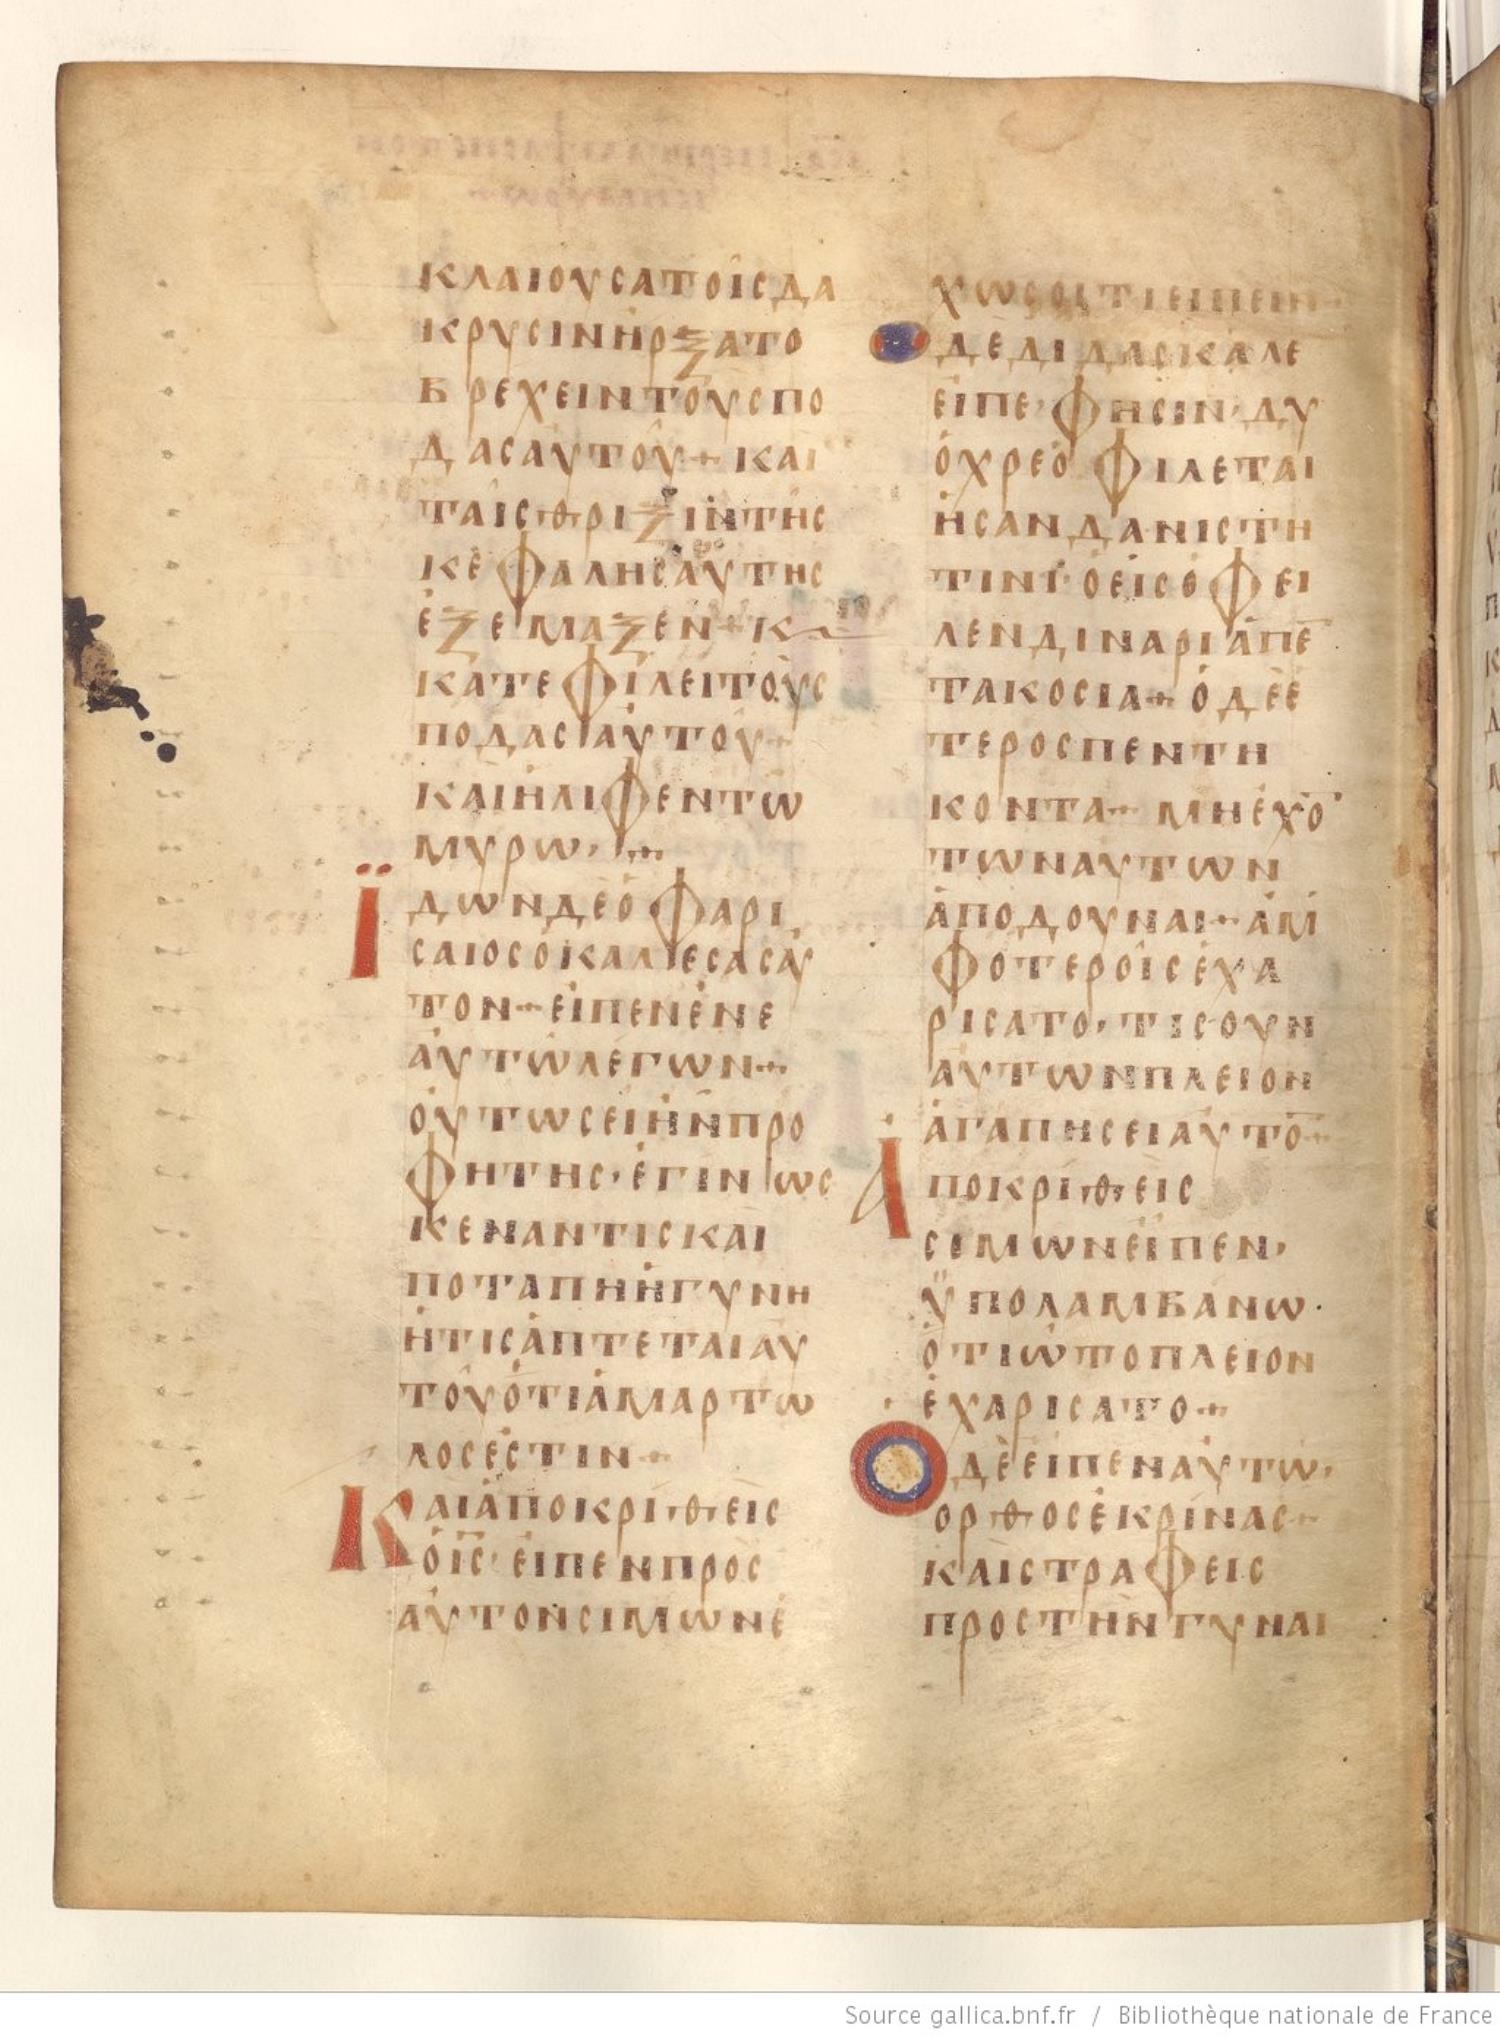 ΚΛΑΙΟΥСΑΤΟΙСΔΑ
ΚΡΥСΙΝΗΡΞΑΤΟ
ΒΡΕΧΕΙΝΤΟΥСΠΟ
ΔΑСΑΥΤΟΥ+ΚΑΙ
ΤΑΙСΘΡΙΞΙΝΤΗС
ΚΕΦΑΛΗСΑΥΤΗС
ΕΞΕΜΑΞΕΝ+Κ
ΚΑΤΕΦΙΛΕΙΤΟΥС
ΠΟΔΑСΑΥΤΟΥ+
ΚΑΙΗΛΙΦΕΝΤΩ
ΜΥΡΩ·+
ΪΔΩΝΔΕΟΦΑΡΙ
СΑΙΟСΟΚΑΛΕСΑСΑΥ
ΤΟΝ+ΕΙΠΕΝΕΝΕ
ΑΥΤΩΛΕΓΩΝ+
ΟΥΤΩСΕΙΗΝΠΡΟ
ΦΗΤΗС·ΕΓΙΝΩС
ΚΕΝΑΝΤΙСΚΑΙ
ΠΟΤΑΠΗΗΓΥΝΗ
ΗΤΙСΑΠΤΕΤΑΙΑΥ
ΤΟΥΟΤΙΑΜΑΡΤΩ
ΛΟСΕСΤΙΝ+
ΚΑΙΑΠΟΚΡΙΘΕΙС
ΟΙ̅С̅·ΕΙΠΕΝΠΡΟС
ΑΥΤΟΝСΙΜΩΝΕ
ΧΩСΟΙΤΙΕΙΠΕΙΝ+
ΟΔΕΔΙΔΑСΚΑΛΕ
ΕΙΠΕ·ΦΗСΙΝ·ΔΥ
ΟΧΡΕΟΦΙΛΕΤΑΙ
ΗСΑΝΔΑΝΙСΤΗ
ΤΙΝΙ·ΟΕΙСΟΦΕΙ
ΛΕΝΔΙΝΑΡΙΑΠΕ̅
ΤΑΚΟСΙΑ+ΟΔΕΕ
ΤΕΡΟСΠΕΝΤΗ
ΚΟΝΤΑ+ΜΗΕΧΟ̅
ΤΩΝΑΥΤΩΝ
ΑΠΟΔΟΥΝΑΙ+ΑΜ
ΦΟΤΕΡΟΙСΕΧΑ
ΡΙСΑΤΟ·ΤΙСΟΥΝ
ΑΥΤΩΝΠΛΕΙΟΝ
ΑΓΑΠΗСΕΙΑΥΤΟ̅+
ΑΠΟΚΡΙΘΕΙС
СΙΜΩΝΕΪΠΕΝ·
ΫΠΟΛΑΜΒΑΝΩ·
ΟΤΙΩΤΟΠΛΕΙΟΝ
ΕΧΑΡΙСΑΤΟ+
ΟΔΕΕΙΠΕΝΑΥΤΩ·
ΟΡΘΟСΕΚΡΙΝΑС+
ΚΑΙСΤΡΑΦΕΙС
ΠΡΟСΤΗΝΓΥΝΑΙ
Source gallica.bnf.fr / Bibliothèque nationale de France